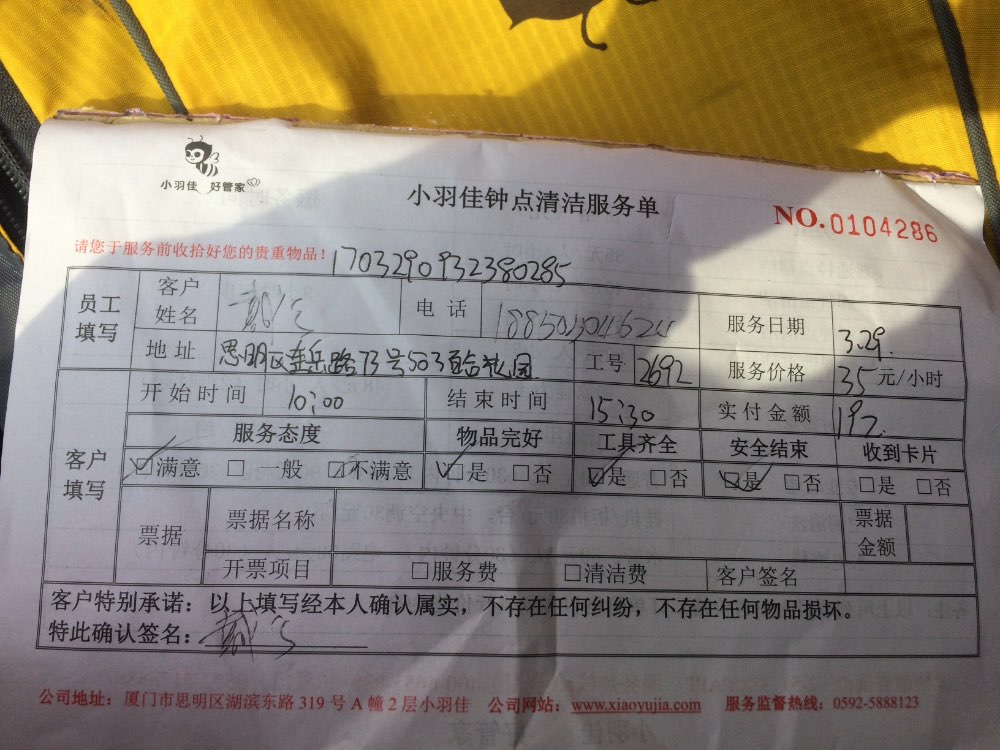 小羽佳 好管家
小羽佳钟点清洁服务单
NO.0104286
请您于服务前收拾好您的贵重物品! 1703290932380285
员工填写
客户姓名 电话 服务日期 3.29.
地址 思明区 路73号503 工号 2692 服务价格 35元/小时
客户填写
开始时间 10:00 结束时间 15:30 实付金额 192.
服务态度 物品完好 工具齐全 安全结束 收到卡片
☑满意 □一般 ☑不满意 ☑是 □否 ☑是 □否 ☑是 □否 □是 □否
票据 票据名称 票据金额
开票项目 □服务费 □清洁费 客户签名
客户特别承诺:以上填写经本人确认属实,不存在任何纠纷,不存在任何物品损坏。
特此确认签名:
公司地址:厦门市思明区湖滨东路 319 号 A 幢 2 层小羽佳 公司网站:www.xiaoyujia.com 服务监督热线:0592-5888123